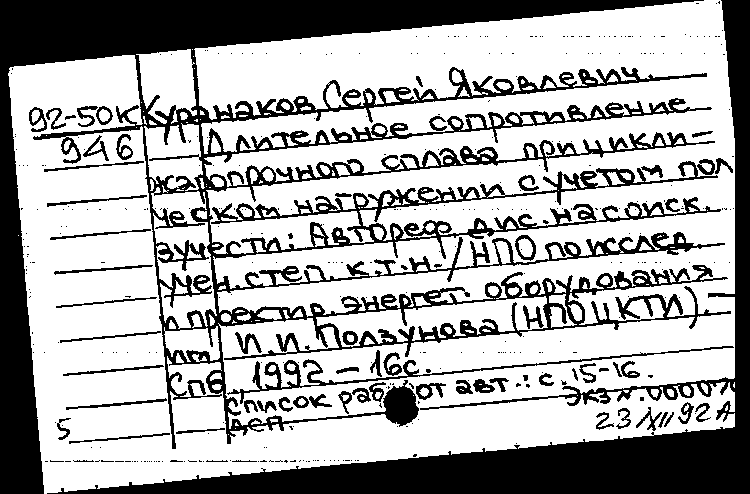 92-50К Куранаков, Сергей Яковлевич.
946 Длительное сопротивление
жаропрочного сплава при цикли-
ческом нагружении с учетом пол
зучести: Автореф. дис. на соиск.
учен. степ. к.т.н. / НПО по исслед.
и проектир. энергет. оборудования
им. И.И. Ползунова (НПО ЦКТИ). —
Спб., 1992. — 16с.
Список работ авт.: с. 15-16.
Экз N. 00007
5 деп. 23/XII 92 А